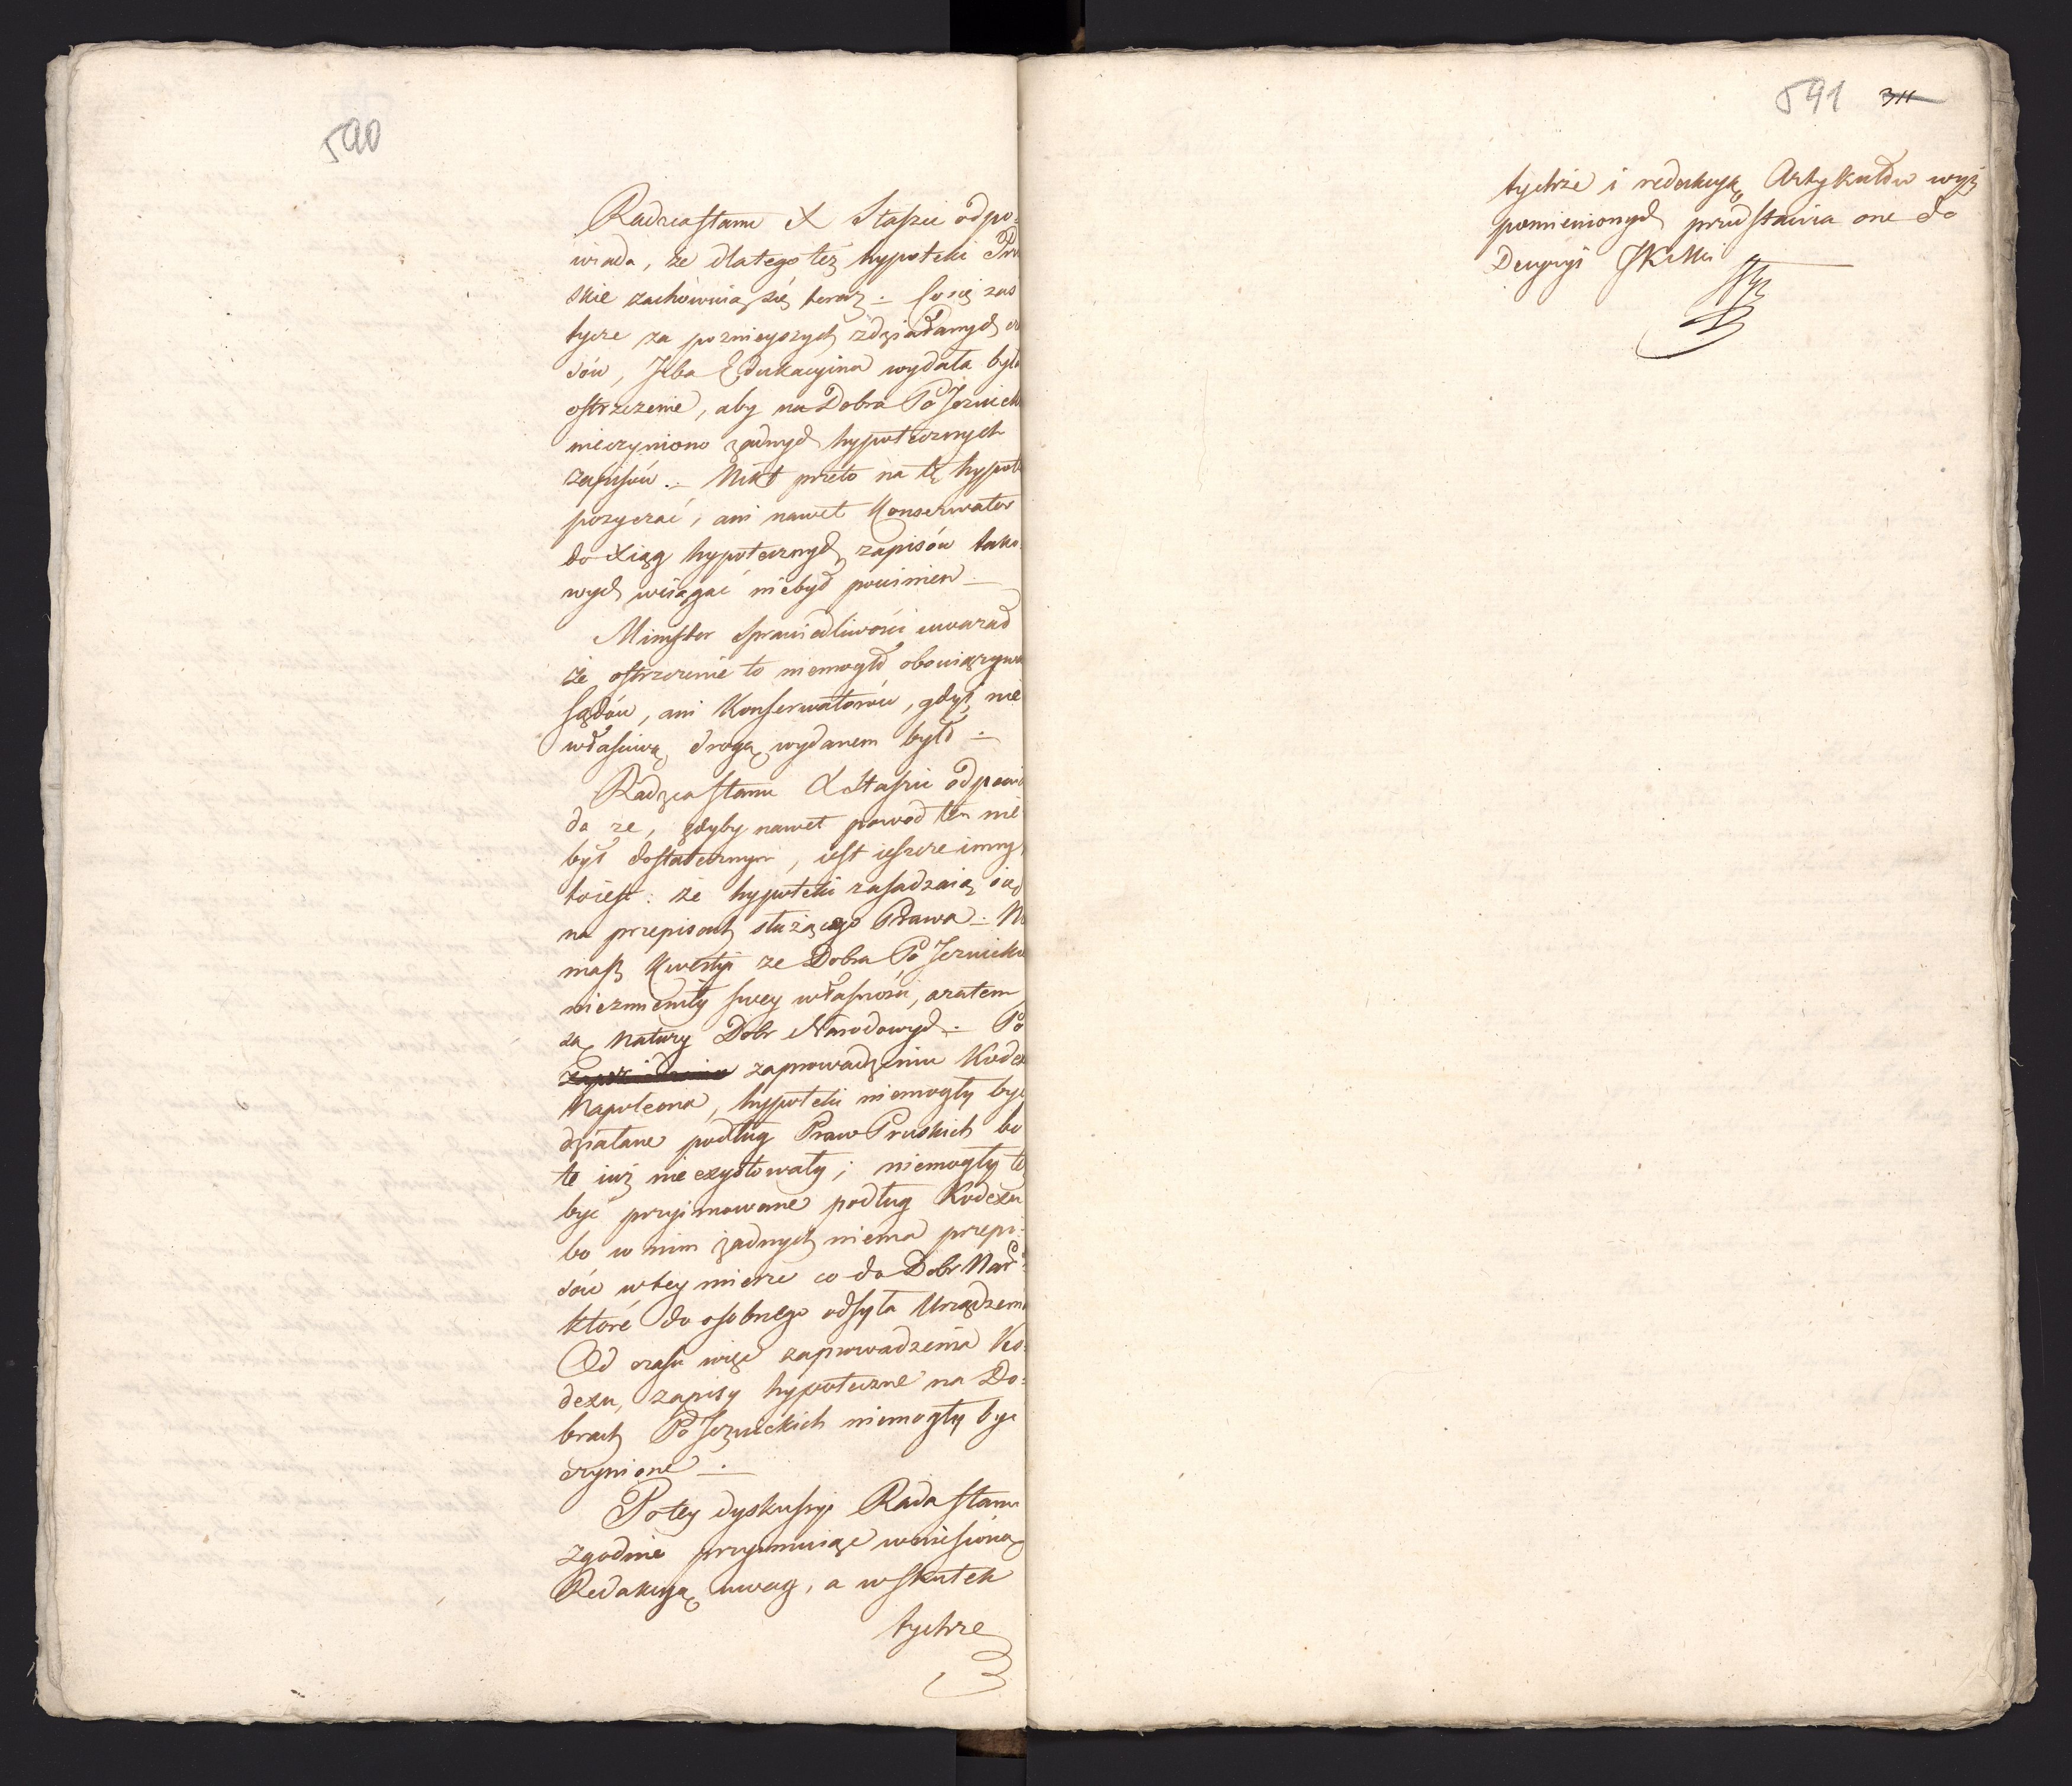 590
Radca Stanu X Staszic odpo:
wiada, że dlatego też hypoteki Pru
skie zachowuią się teraz. Co się zas
tycze za pozniejszych zdziałanych cza
sów, Izba Edukacyina wydała była
ostrzeżenie, aby na Dobra Po Jezuick
nieczyniono żadnych hypotecznych
zapisów. Nikt przeto na tę hypot
pożyczać, ani nawet Konserwator
do Xiąg hypotecznych zapisów tako
wych wciągać niebył powinien
Minister Sprawiedliwości uważał
że ostrzeżenie to niemogło obowiązywa
Sądów, ani Konserwatorów, gdyż nie
właściwą drogą wydanem było.
Radca Stanu X Staszic odpowia
da że, gdyby nawet powód ten nie
był dostatecznym, iest ieszcze inny
toiest: że hypoteki zasadzaią się
na przepisach służącego Prawa. Ni
masz kwestyi że Dobra Po Jezuickie
niezmieniły swey własności, a zatem
są natury Dobr Narodowych. Po
zaprowadzeniu Kodex
Napoleona, hypoteki niemogły być
działane podług Praw Pruskich bo
te iuż nie exystowały; niemogły te
być przyimowane podług Kodexu
bo w nim żadnych niema przepi:
sów wtey mierze co do Dobr Nar
które do osobnego odsyła Urządzeni
Od czasu więc zaprowadzenia Ko:
dexu, zapisy hypoteczne na Do:
brach Po Jezuickich niemogły być
czynione.
Po tey dyskussyi Rada Stanu
zgodnie przyimuiąc wniesioną
Redakcyą uwag, a wskutek
tychże
591 311
tychże i redakcyą Artykułów wyż
pomienionych przedstawia one do
Decyzyi JKMci